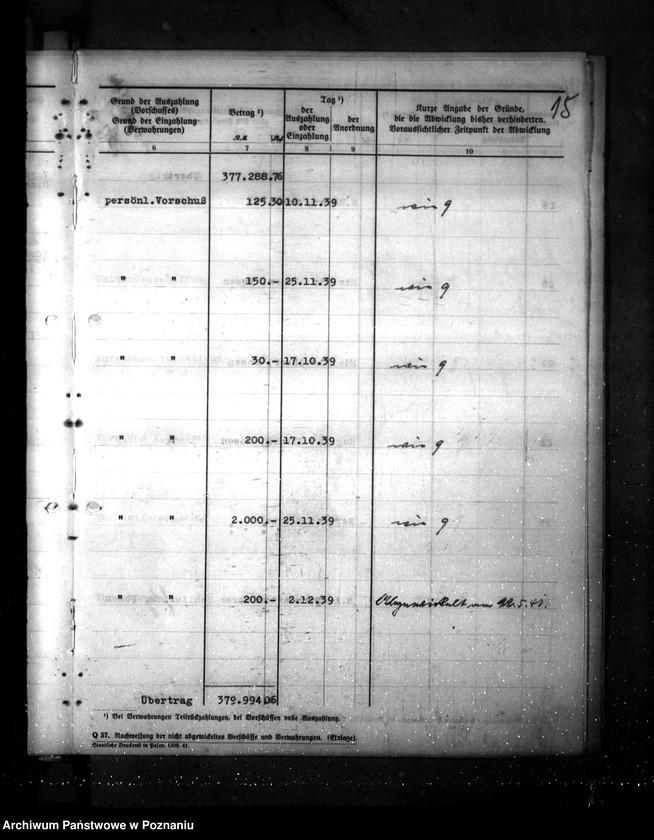 15
Grund der Auszahlung
(Vorschusses)
Grund der Einzahlung
(Verwahrungen)
Betrag ¹)
RM Rpf
Tag ¹)
der
Auszahlung
oder
Einzahlung
der
Anordnung
Kurze Angabe der Gründe,
die die Abwicklung bisher verhinderten.
Voraussichtlicher Zeitpunkt der Abwicklung
6 7 8 9 10
377.288.76
persönl.Vorschuß 125.30 10.11.39 wie 9
" " 150.- 25.11.39 wie 9
" " 30.- 17.10.39 wie 9
" " 200.- 17.10.39 wie 9
" " 2.000.- 25.11.39 wie 9
" " 200.- 2.12.39 Abgewickelt am 5.41.
Übertrag 379.994 06
¹) Bei Verwahrungen Teilrückzahlungen, bei Vorschüssen volle Auszahlung.
Q 57. Nachweisung der nicht abgewickelten Vorschüsse und Verwahrungen. (Einlage).
Staatliche Druckerei in Posen. 41.
Archiwum Państwowe w Poznaniu